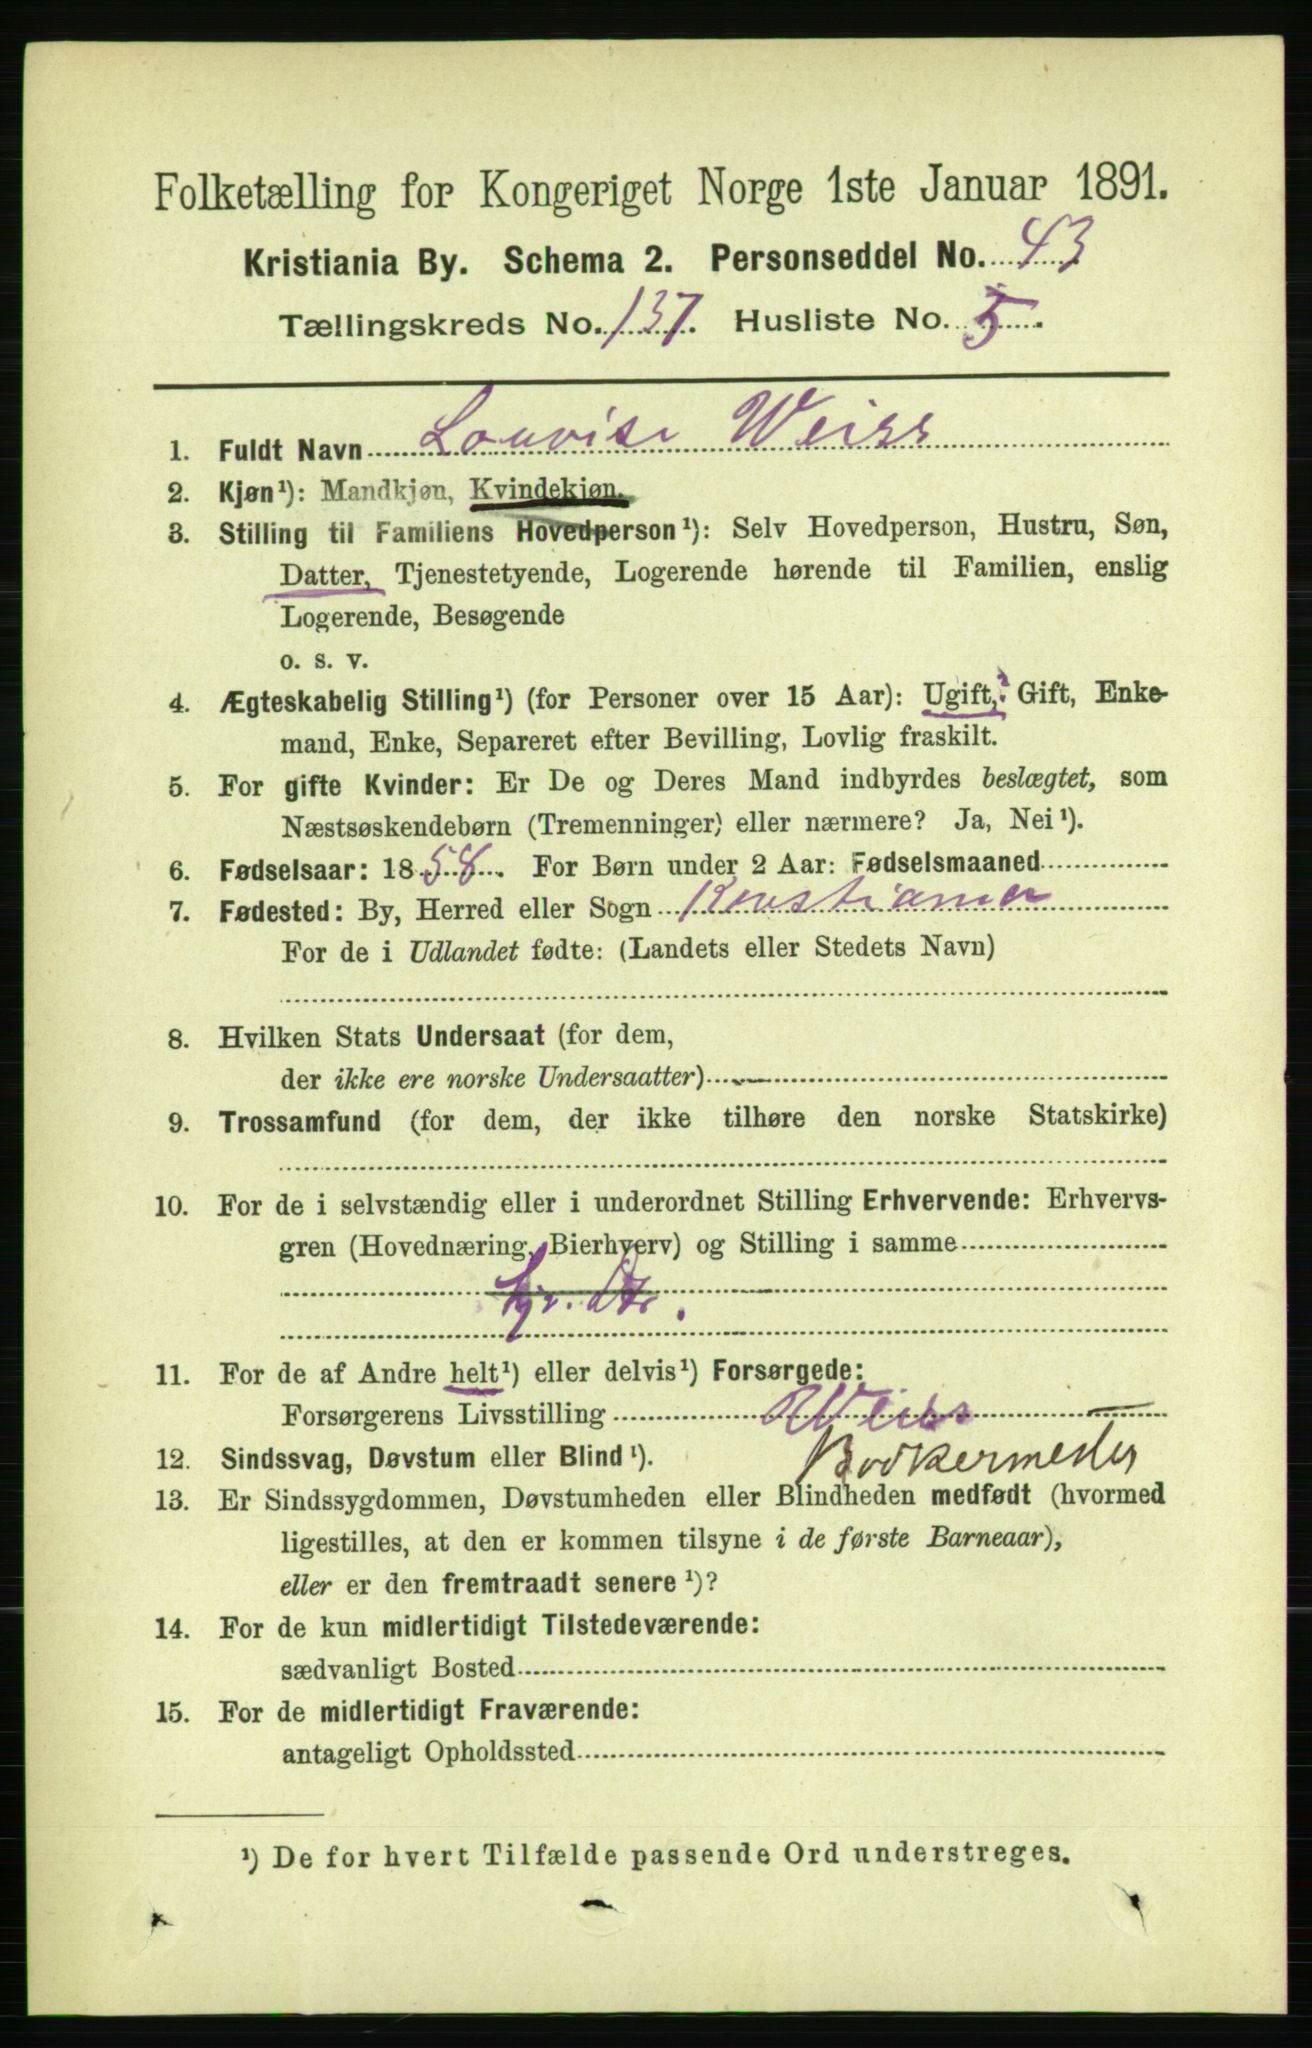 Folketælling for Kongeriget Norge 1ste Januar 1891.
Kristiania By. Schema 2. Personseddel No. 43
Tællingskreds No. 137. Husliste No. 5.
1. Fuldt Navn Louvise Weiss
2. Kjøn¹): Mandkjøn, Kvindekjøn.
3. Stilling til Familiens Hovedperson¹): Selv Hovedperson, Hustru, Søn,
Datter, Tjenestetyende, Logerende hørende til Familien, enslig
Logerende, Besøgende
o. s. v.
4. Ægteskabelig Stilling¹) (for Personer over 15 Aar): Ugift, Gift, Enke-
mand, Enke, Separeret efter Bevilling, Lovlig fraskilt.
5. For gifte Kvinder: Er De og Deres Mand indbyrdes beslægtet, som
Næstsøskendebørn (Tremenninger) eller nærmere? Ja, Nei¹).
6. Fødselsaar: 1858. For Børn under 2 Aar: Fødselsmaaned
7. Fødested: By, Herred eller Sogn Kristiania
For de i Udlandet fødte: (Landets eller Stedets Navn)
8. Hvilken Stats Undersaat (for dem,
der ikke ere norske Undersaatter)
9. Trossamfund (for dem, der ikke tilhøre den norske Statskirke)
10. For de i selvstændig eller i underordnet Stilling Erhvervende: Erhvervs-
gren (Hovednæring, Bierhverv) og Stilling i samme
11. For de af Andre helt¹) eller delvis¹) Forsørgede:
Forsørgerens Livsstilling Weiss
Bødkermester
12. Sindssvag, Døvstum eller Blind¹).
13. Er Sindssygdommen, Døvstumheden eller Blindheden medfødt (hvormed
ligestilles, at den er kommen tilsyne i de første Barneaar),
eller er den fremtraadt senere¹)?
14. For de kun midlertidigt Tilstedeværende:
sædvanligt Bosted
15. For de midlertidigt Fraværende:
antageligt Opholdssted
¹) De for hvert Tilfælde passende Ord understreges.